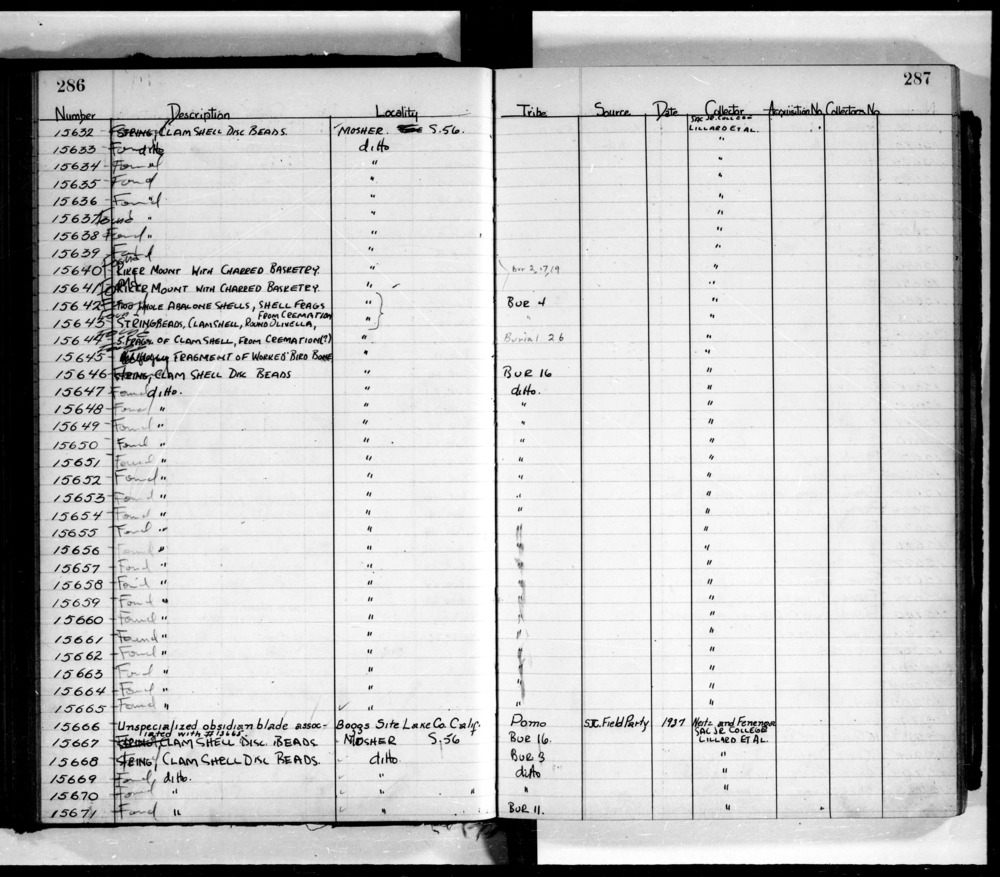 286
287
Number Description Locality Tribe Source Date Collector Acquisition No Collectors No
15632 STRING, CLAM SHELL DISC BEADS. MOSHER. S.56. SAC JR. COLLEGE
LILLARD ET AL.
15633 Found ditto ditto "
15634 Found " "
15635 Found " "
15636 Found " "
15637 Found " " "
15638 Found " " "
15639 Found " "
Found
15640 RIKER MOUNT WITH CHARRED BASKETRY. " Bur 3, 17, 19 "
15641 RIKER MOUNT WITH CHARRED BASKETRY. " "
15642 TWO WHOLE ABALONE SHELLS, SHELL FRAGS " BUR 4 "
FROM CREMATION
15643 STRING BEADS, CLAMSHELL, ROUND OLIVELLA, " "
15644 5 FRAGS. OF CLAM SHELL, FROM CREMATION(?) " Burial 26 "
15645 FRAGMENT OF WORKED BIRD BONE " "
15646 STRING, CLAM SHELL DISC BEADS " BUR 16 "
15647 Found ditto. " ditto. "
15648 Found " " " "
15649 Found " " " "
15650 Found " " " "
15651 Found " " " "
15652 Found " " " "
15653 Found " " " "
15654 Found " " " "
15655 Found " " " "
15656 Found " " " "
15657 Found " " " "
15658 Found " " " "
15659 Found " " " "
15660 Found " " " "
15661 Found " " " "
15662 Found " " " "
15663 Found " " " "
15664 Found " " " "
15665 Found " " " "
15666 Unspecialized obsidian blade assoc- Boggs Site Lake Co. Calif. Pomo SJC. Field Party 1937 Neitz and Fenenga
iated with # 15665.
SAC JR. COLLEGE
15667 STRING, CLAM SHELL DISC BEADS MOSHER S.56 BUR 16. LILLARD ET AL.
15668 STRING, CLAM SHELL DISC BEADS. ditto. BUR 3 "
15669 Found ditto. " ditto "
15670 Found " " " "
15671 Found " " BUR 11. "